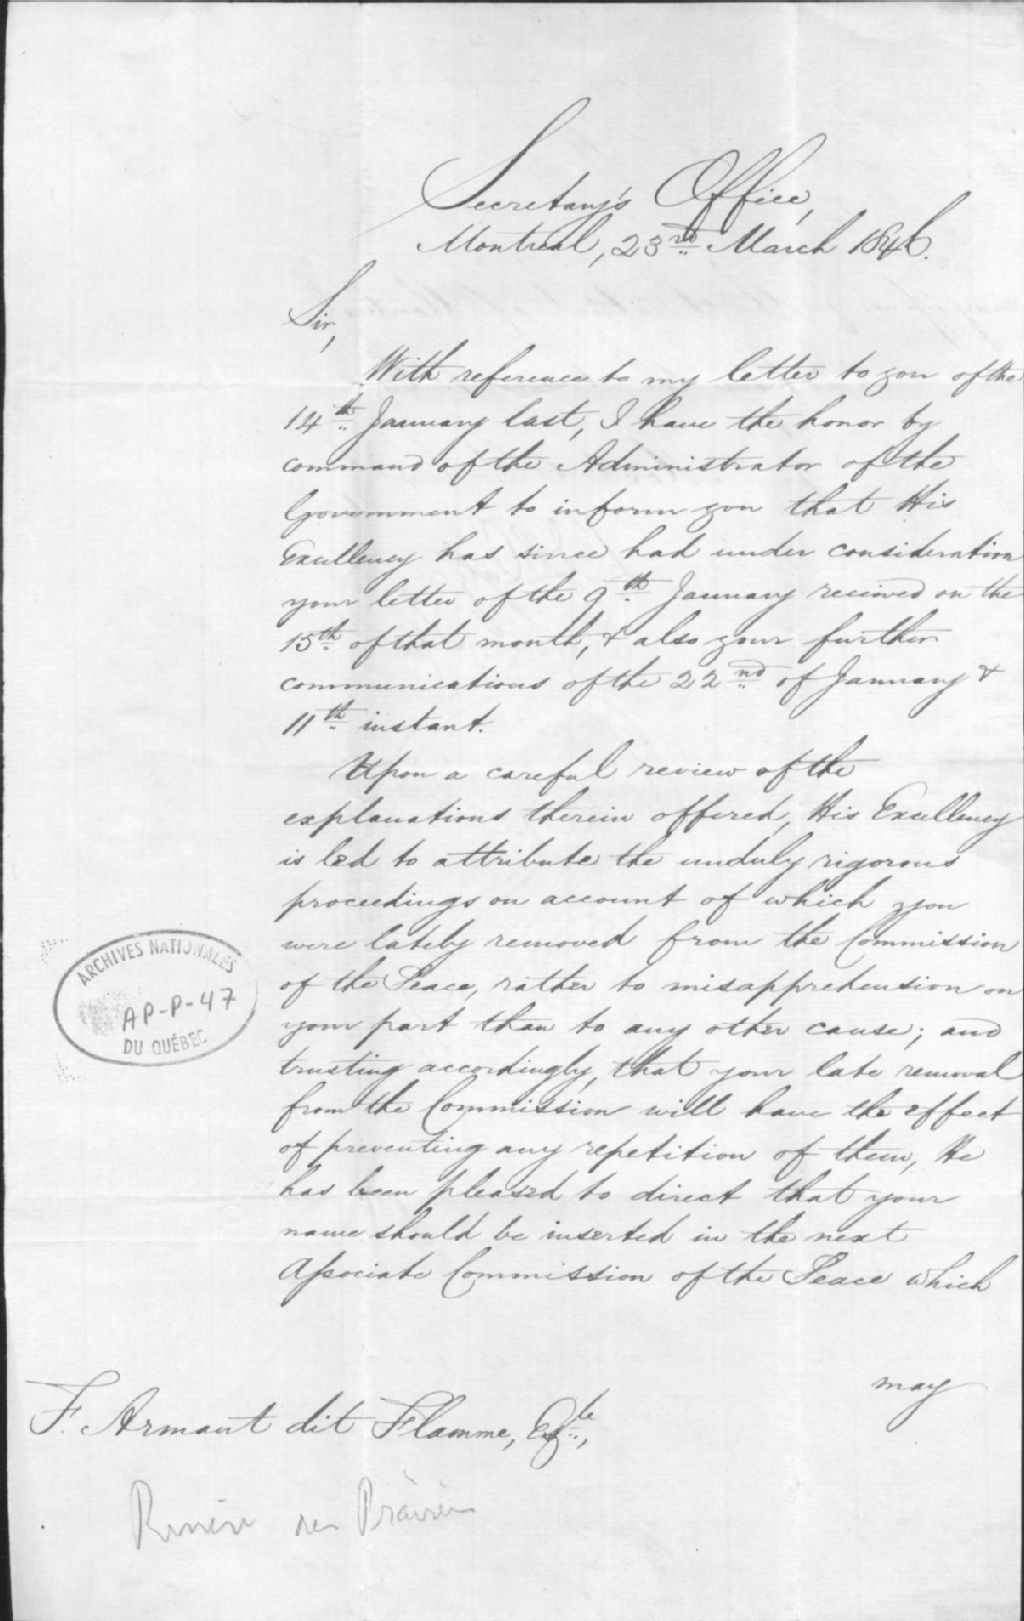 Secretary's Office,
Montreal, 23rd March 1846.
Sir,
With reference to my letter to you of the
14th January last, I have the honor by
command of the Administrator of the
Government to inform you that His
Excellency has since had under consideration
your letter of the 9th January received on the
15th of that month, & also your further
communications of the 22nd of January &
11th instant.
Upon a careful review of the
explanations therein offered, His Excellency
is led to attribute the unduly rigorous
proceedings on account of which you
were lately removed from the Commission
of the Peace, rather to misapprehension on
your part than to any other cause; and
trusting accordingly, that your late removal
from the Commission will have the effect
of preventing any repetition of them, He
has been pleased to direct that your
name should be inserted in the next
Associate Commission of the Peace which
may
F. Armant dit Flamme, Esqre,
Rivière des Prairies
ARCHIVES NATIONALES
AP-P-47
DU QUÉBEC